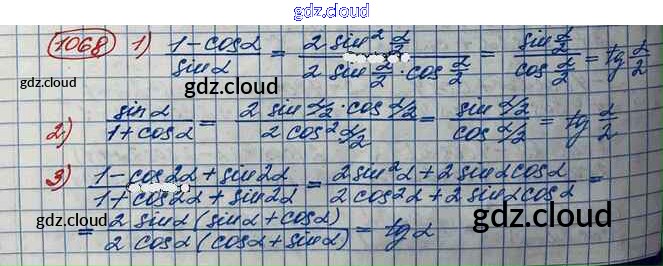 gdz.cloud
1068 1) (1-cosα)/(sinα) = (2 sin² α/2)/(2 sin α/2 · cos α/2) = (sin α/2)/(cos α/2) = tg α/2
gdz.cloud
gdz.cloud
2) (sinα)/(1+cosα) = (2 sin α/2 · cos α/2)/(2 cos² α/2) = (sin α/2)/(cos α/2) = tg α/2
3) (1-cos2α+sin2α)/(1+cos2α+sin2α) = (2sin²α+2sinαcosα)/(2cos²α+2sinαcosα) =
gdz.cloud
gdz.cloud
= (2 sinα(sinα+cosα))/(2 cosα(cosα+sinα)) = tgα
gdz.cloud